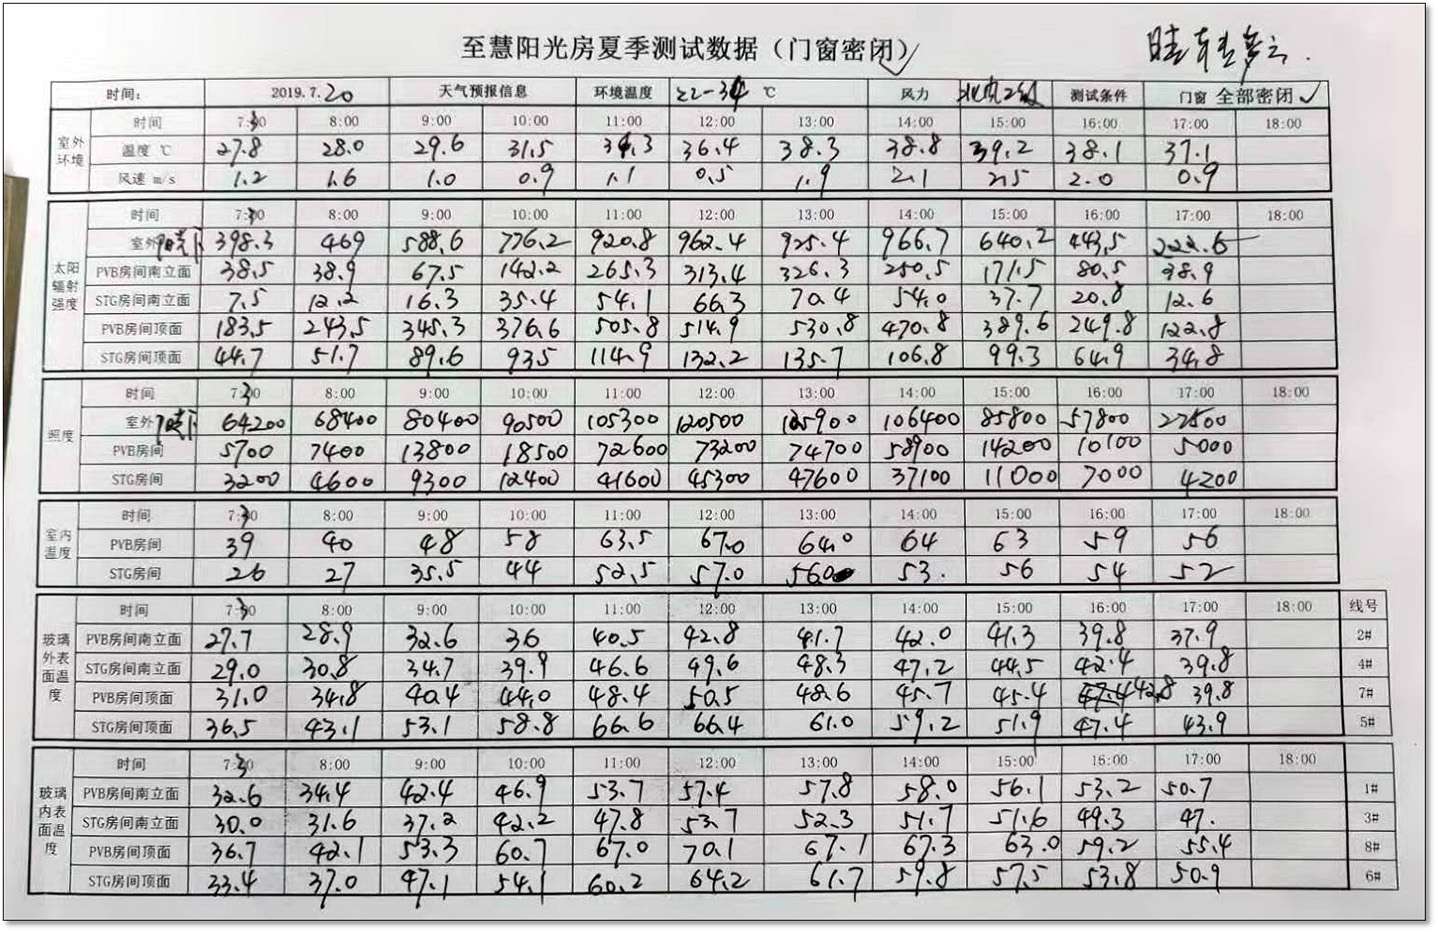 至慧阳光房夏季测试数据（门窗密闭）✓
晴转多云.
时间: 2019.7.20 天气预报信息 环境温度 22-34 ℃ 风力 北风2级 测试条件 门窗 全部密闭 ✓
室外环境
时间 7:30 8:00 9:00 10:00 11:00 12:00 13:00 14:00 15:00 16:00 17:00 18:00
温度 ℃ 27.8 28.0 29.6 31.5 34.3 36.4 38.3 38.8 39.2 38.1 37.1
风速 m/s 1.2 1.6 1.0 0.9 1.1 0.5 1.9 2.1 2.5 2.0 0.9
太阳辐射强度
时间 7:30 8:00 9:00 10:00 11:00 12:00 13:00 14:00 15:00 16:00 17:00 18:00
室外 398.3 469 588.6 776.2 920.8 962.4 925.4 966.7 640.2 443.5 222.6
PVB房间南立面 38.5 38.9 67.5 142.2 265.3 313.4 326.3 250.5 171.5 80.5 38.9
STG房间南立面 7.5 12.2 16.3 35.4 54.1 66.3 70.4 54.0 37.7 20.8 12.6
PVB房间顶面 183.5 243.5 345.3 376.6 505.8 514.9 530.8 470.8 389.6 249.8 122.8
STG房间顶面 44.7 51.7 89.6 93.5 114.9 132.2 135.7 106.8 99.3 64.9 34.8
照度
时间 7:30 8:00 9:00 10:00 11:00 12:00 13:00 14:00 15:00 16:00 17:00 18:00
室外 64200 68400 80400 90500 105300 120500 125900 106400 85800 57800 27500
PVB房间 5700 7400 13800 18500 72600 73200 74700 58900 14200 10100 5000
STG房间 3200 4600 9300 12400 41600 45300 47600 37100 11000 7000 4200
室内温度
时间 7:30 8:00 9:00 10:00 11:00 12:00 13:00 14:00 15:00 16:00 17:00 18:00
PVB房间 39 40 48 58 63.5 67.0 64.0 64 63 59 56
STG房间 26 27 35.5 44 52.5 57.0 56.0 53. 56 54 52
玻璃外表面温度
时间 7:30 8:00 9:00 10:00 11:00 12:00 13:00 14:00 15:00 16:00 17:00 18:00 线号
PVB房间南立面 27.7 28.9 32.6 36 40.5 42.8 41.7 42.0 41.3 39.8 37.9 2#
STG房间南立面 29.0 30.8 34.7 39.9 46.6 49.6 48.3 47.2 44.5 42.4 39.8 4#
PVB房间顶面 31.0 34.8 40.4 44.0 48.4 50.5 48.6 45.7 45.4 42.8 39.8 7#
STG房间顶面 36.5 43.1 53.1 58.8 66.6 66.4 61.0 59.2 51.9 47.4 43.9 5#
玻璃内表面温度
时间 7:30 8:00 9:00 10:00 11:00 12:00 13:00 14:00 15:00 16:00 17:00 18:00
PVB房间南立面 32.6 34.4 42.4 46.9 53.7 57.4 57.8 58.0 56.1 53.2 50.7 1#
STG房间南立面 30.0 31.6 37.2 42.2 47.8 53.7 52.3 51.7 51.6 49.3 47. 3#
PVB房间顶面 36.7 42.1 53.3 60.7 67.0 70.1 67.1 67.3 63.0 59.2 55.4 8#
STG房间顶面 33.4 37.0 47.1 54.1 60.2 64.2 61.7 59.8 57.5 53.8 50.9 6#